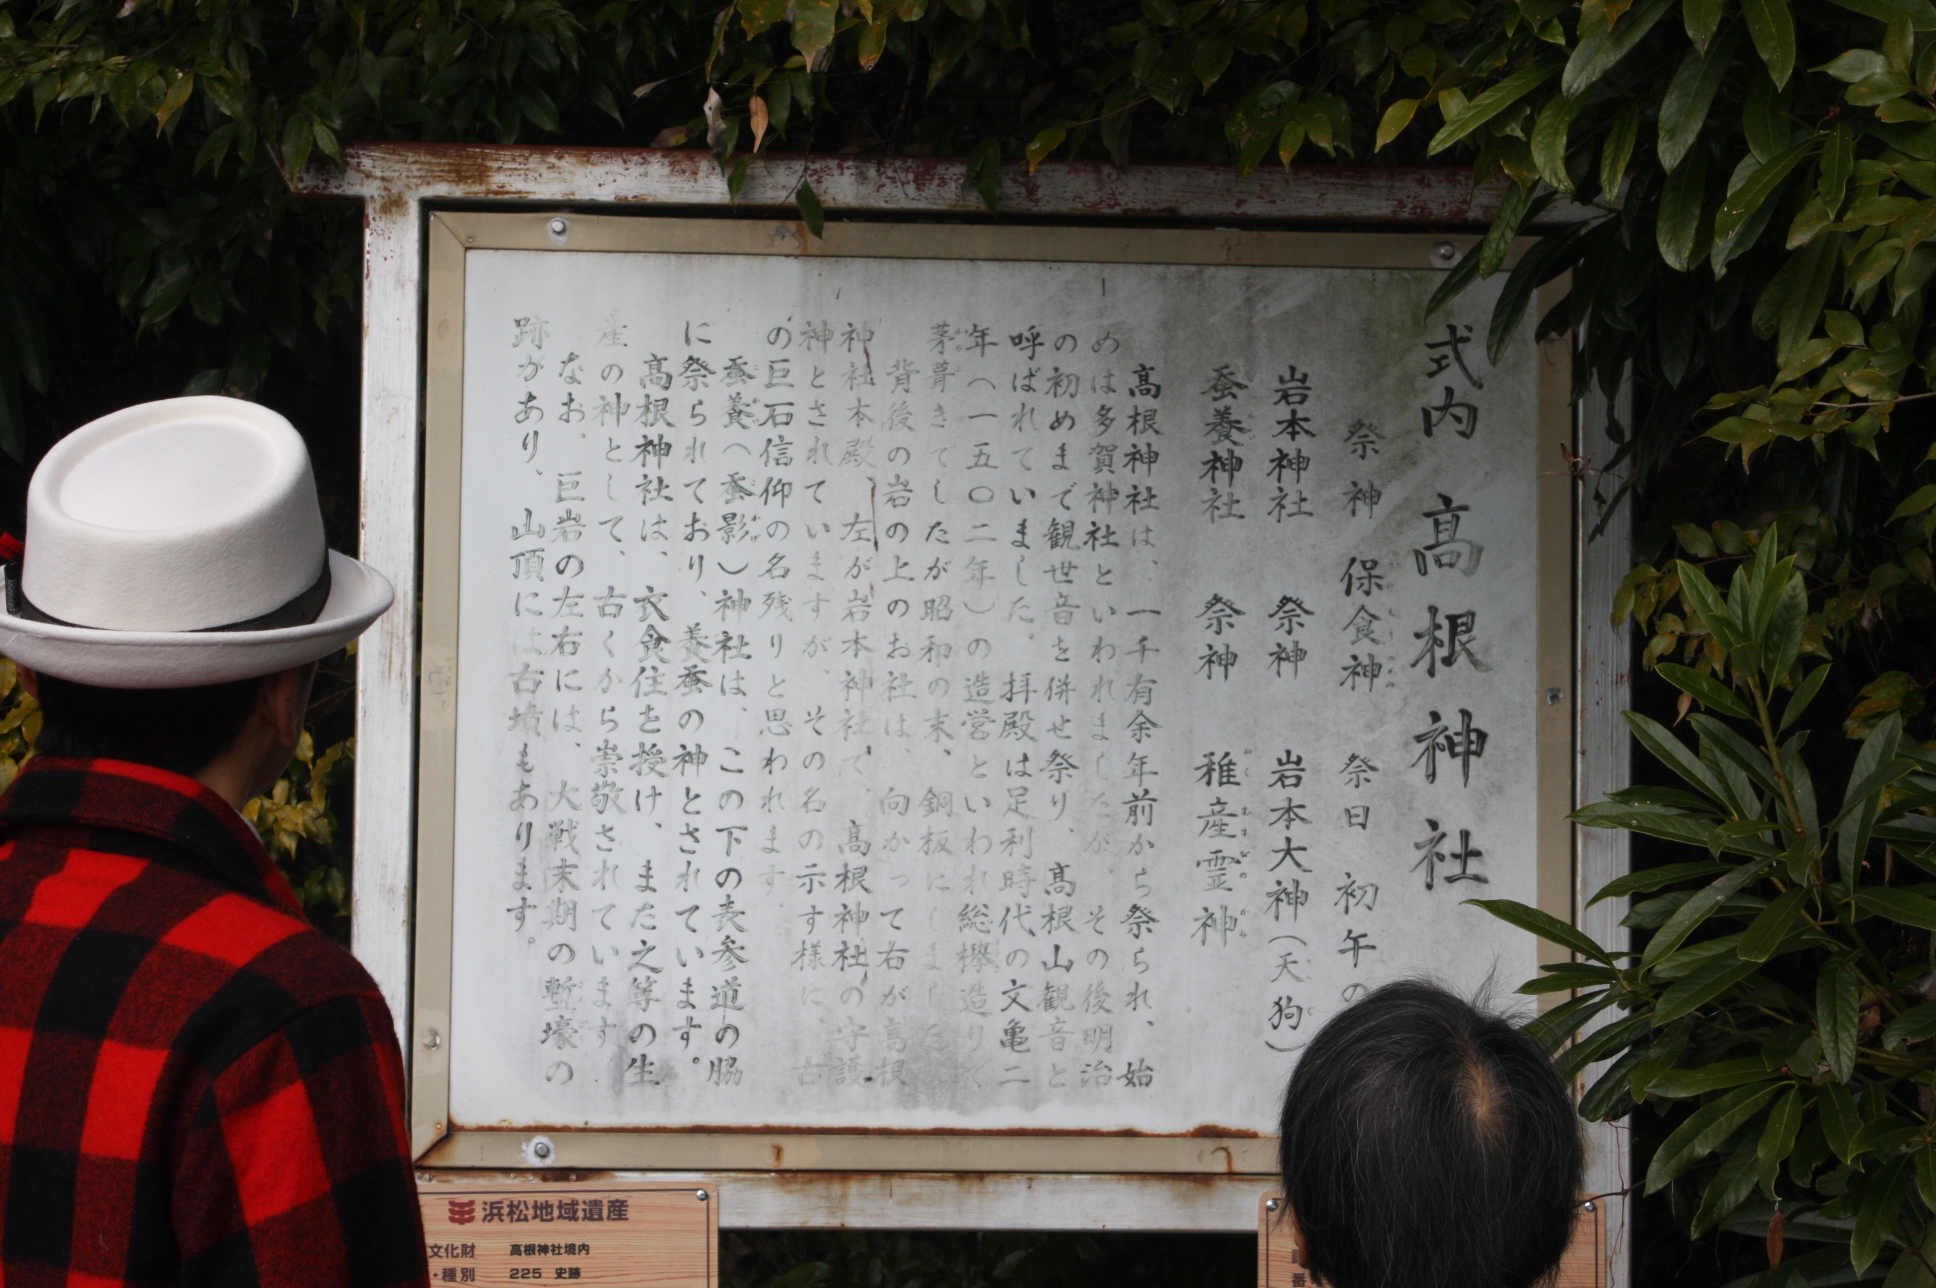 式内 髙根神社
祭神 保食神 祭日 初午の
岩本神社 祭神 岩本大神(天狗)
蚕養神社 祭神 稚産霊神
髙根神社は、一千有余年前から祭られ、始
めは多賀神社といわれましたが、その後明治
の初めまで観世音を併せ祭り、髙根山観音と
呼ばれていました。拝殿は足利時代の文亀二
年(一五〇二年)の造営といわれ総欅造りで
茅葺きでしたが昭和の末、銅板にしました
背後の岩の上のお社は、向かって右が髙根
神社本殿、左が岩本神社で、髙根神社の守護
神とされていますが、その名の示す様に、古
の巨石信仰の名残りと思われます。
蚕養(蚕影)神社は、この下の表参道の脇
に祭られており、養蚕の神とされています。
髙根神社は、衣食住を授け、また之等の生
産の神として、古くから崇敬されています
なお、巨岩の左右には、大戦末期の塹壕の
跡があり、山頂には古墳もあります。
浜松地域遺産
文化財 高根神社境内
・種別 225 史跡
番